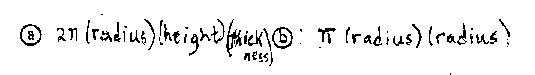 ⓐ 2π (radius)(height)(thickness) ⓑ : π (radius)(radius)